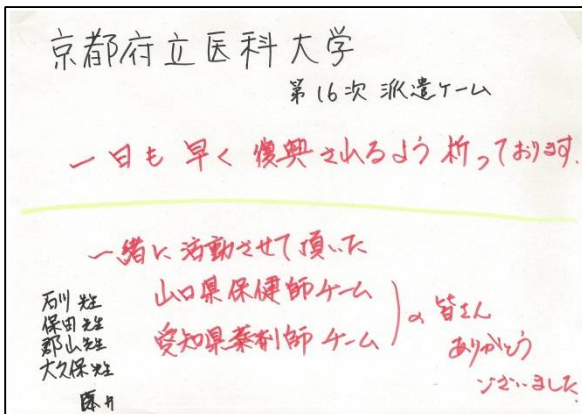 京都府立医科大学
第16次 派遣チーム
一日も 早く 復興されるよう 祈っております.
一緒に活動させて頂いた
山口県保健師チーム
愛知県薬剤師 チーム
の 皆さん
ありがとう
ございました
石川 先生
保田先生
郡山先生
大久保先生
藤井